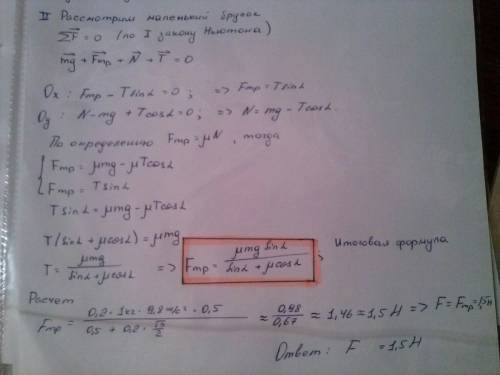 II Рассмотрим маленький брусок
ΣF⃗ = 0 (по I закону Ньютона)
m⃗g + F⃗тр + N⃗ + T⃗ = 0
Ox : Fтр - Tsinα = 0 ; => Fтр = Tsinα
Oy : N - mg + Tcosα = 0 ; => N = mg - Tcosα.
По определению Fтр = μN , тогда
{ Fтр = μmg - μTcosα
Fтр = T sinα
T sinα = μmg - μTcosα
T(sinα + μcosα) = μmg
T = μmg / (sinα + μcosα) => Fтр = μmg sinα / (sinα + μcosα) ; Итоговая формула
Расчет
Fтр = 0,2 · 1кг · 9,8 м/с² · 0,5 / (0,5 + 0,2 · √3/2) ≈ 0,98/0,67 ≈ 1,46 ≈ 1,5 Н => F = Fтр = 1,5Н
Ответ: F = 1,5Н